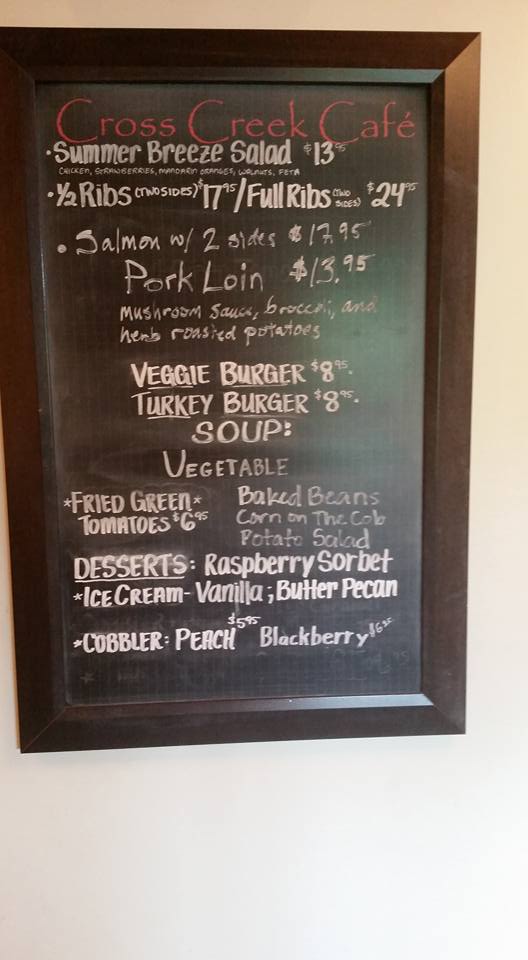 Cross Creek Café
·Summer Breeze Salad $13.95
CHICKEN, STRAWBERRIES, MANDARIN ORANGES, WALNUTS, FETA
·½ Ribs (TWO SIDES) $17.95 / Full Ribs (TWO SIDES) $24.95
· Salmon w/ 2 sides $17.95
Pork Loin $13.95
mushroom sauce, broccoli, and
herb roasted potatoes
VEGGIE BURGER $8.95.
TURKEY BURGER $8.95.
SOUP:
VEGETABLE
*FRIED GREEN*
TOMATOES $6.95
Baked Beans
Corn on The Cob
Potato Salad
DESSERTS: Raspberry Sorbet
*ICE CREAM- Vanilla ; Butter Pecan
*COBBLER: PEACH $5.95 Blackberry $6.95